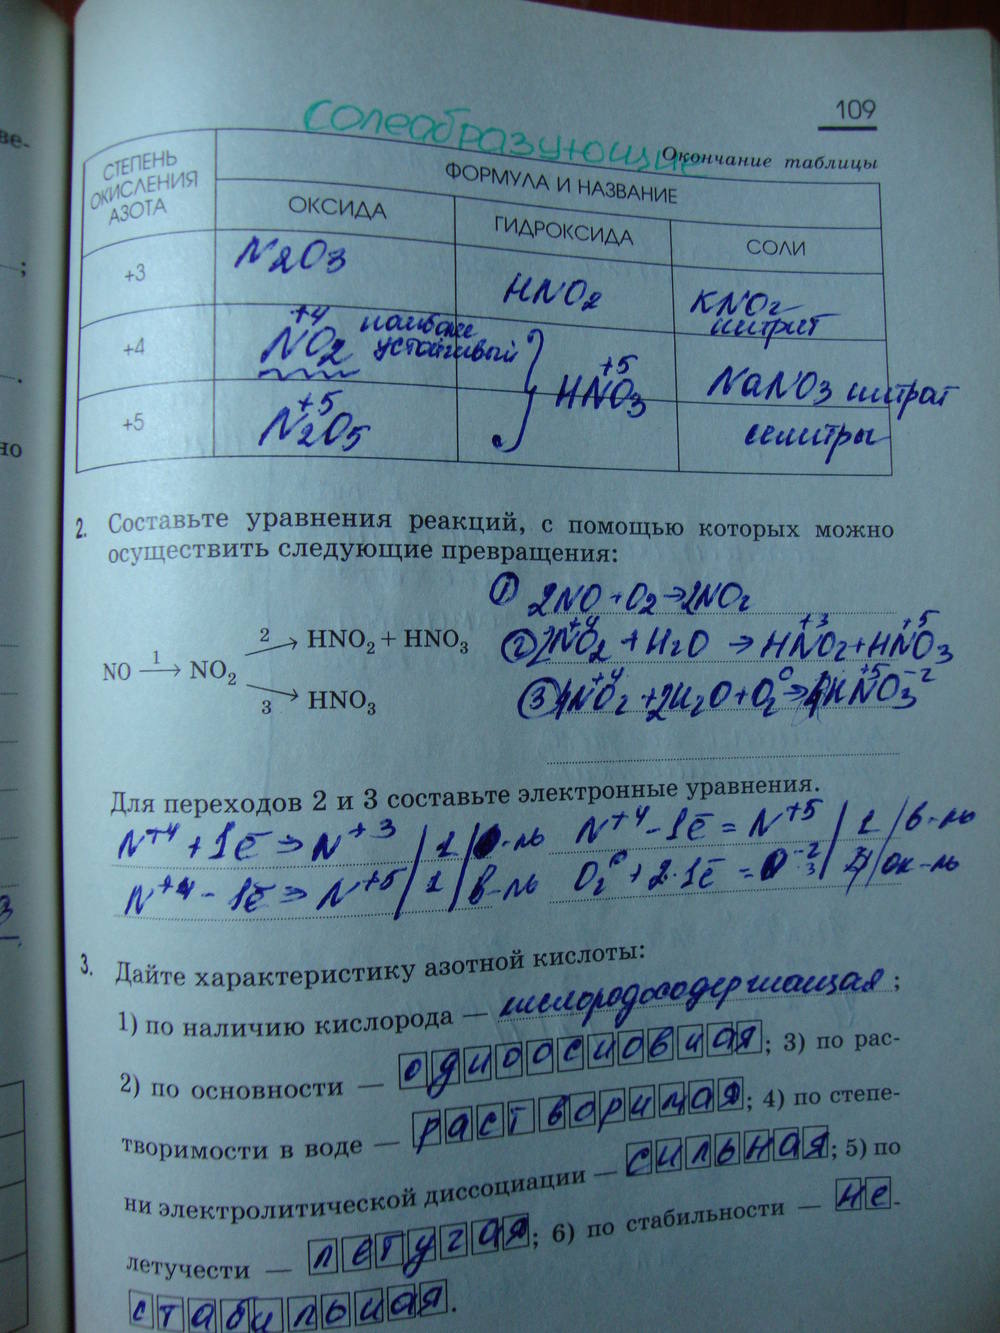 109
Солеобразующие
Окончание таблицы
СТЕПЕНЬ ОКИСЛЕНИЯ АЗОТА
ФОРМУЛА И НАЗВАНИЕ
ОКСИДА ГИДРОКСИДА СОЛИ
+3 N2O3 HNO2 KNO2 нитрит
+4 +4 NO2 наиболее устойчивый
+5 HNO3 NaNO3 нитрат
+5 +5 N2O5 селитры
2. Составьте уравнения реакций, с помощью которых можно
осуществить следующие превращения:
① 2NO + O2 → 2NO2
2 → HNO2 + HNO3
② 2NO2 + H2O → HNO2 + HNO3
+4 +3 +5
NO 1 → NO2
3 → HNO3
③ 4NO2 + 2H2O + O2 → 4HNO3
+4 0 +5 -2
Для переходов 2 и 3 составьте электронные уравнения.
N+4 + 1ē → N+3 / 1 / о-ль N+4 - 1ē = N+5 / 1 / в-ль
N+4 - 1ē → N+5 / 1 / в-ль O2 0 + 2·1ē = O-2 / ок-ль
3. Дайте характеристику азотной кислоты:
1) по наличию кислорода — кислородосодержащая ;
2) по основности — одноосновная ; 3) по рас-
творимости в воде — растворимая ; 4) по степе-
ни электролитической диссоциации — сильная ; 5) по
летучести — летучая ; 6) по стабильности — не-
стабильная .
ве-
;
.
но
3